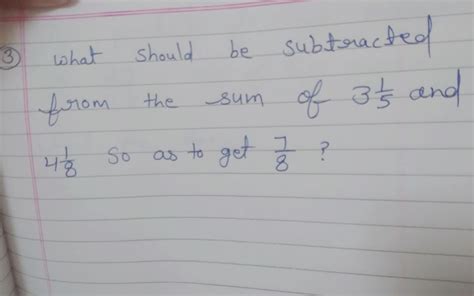 ③ what should be subtracted
from the sum of 3 1/5 and
4 1/8 so as to get 7/8 ?